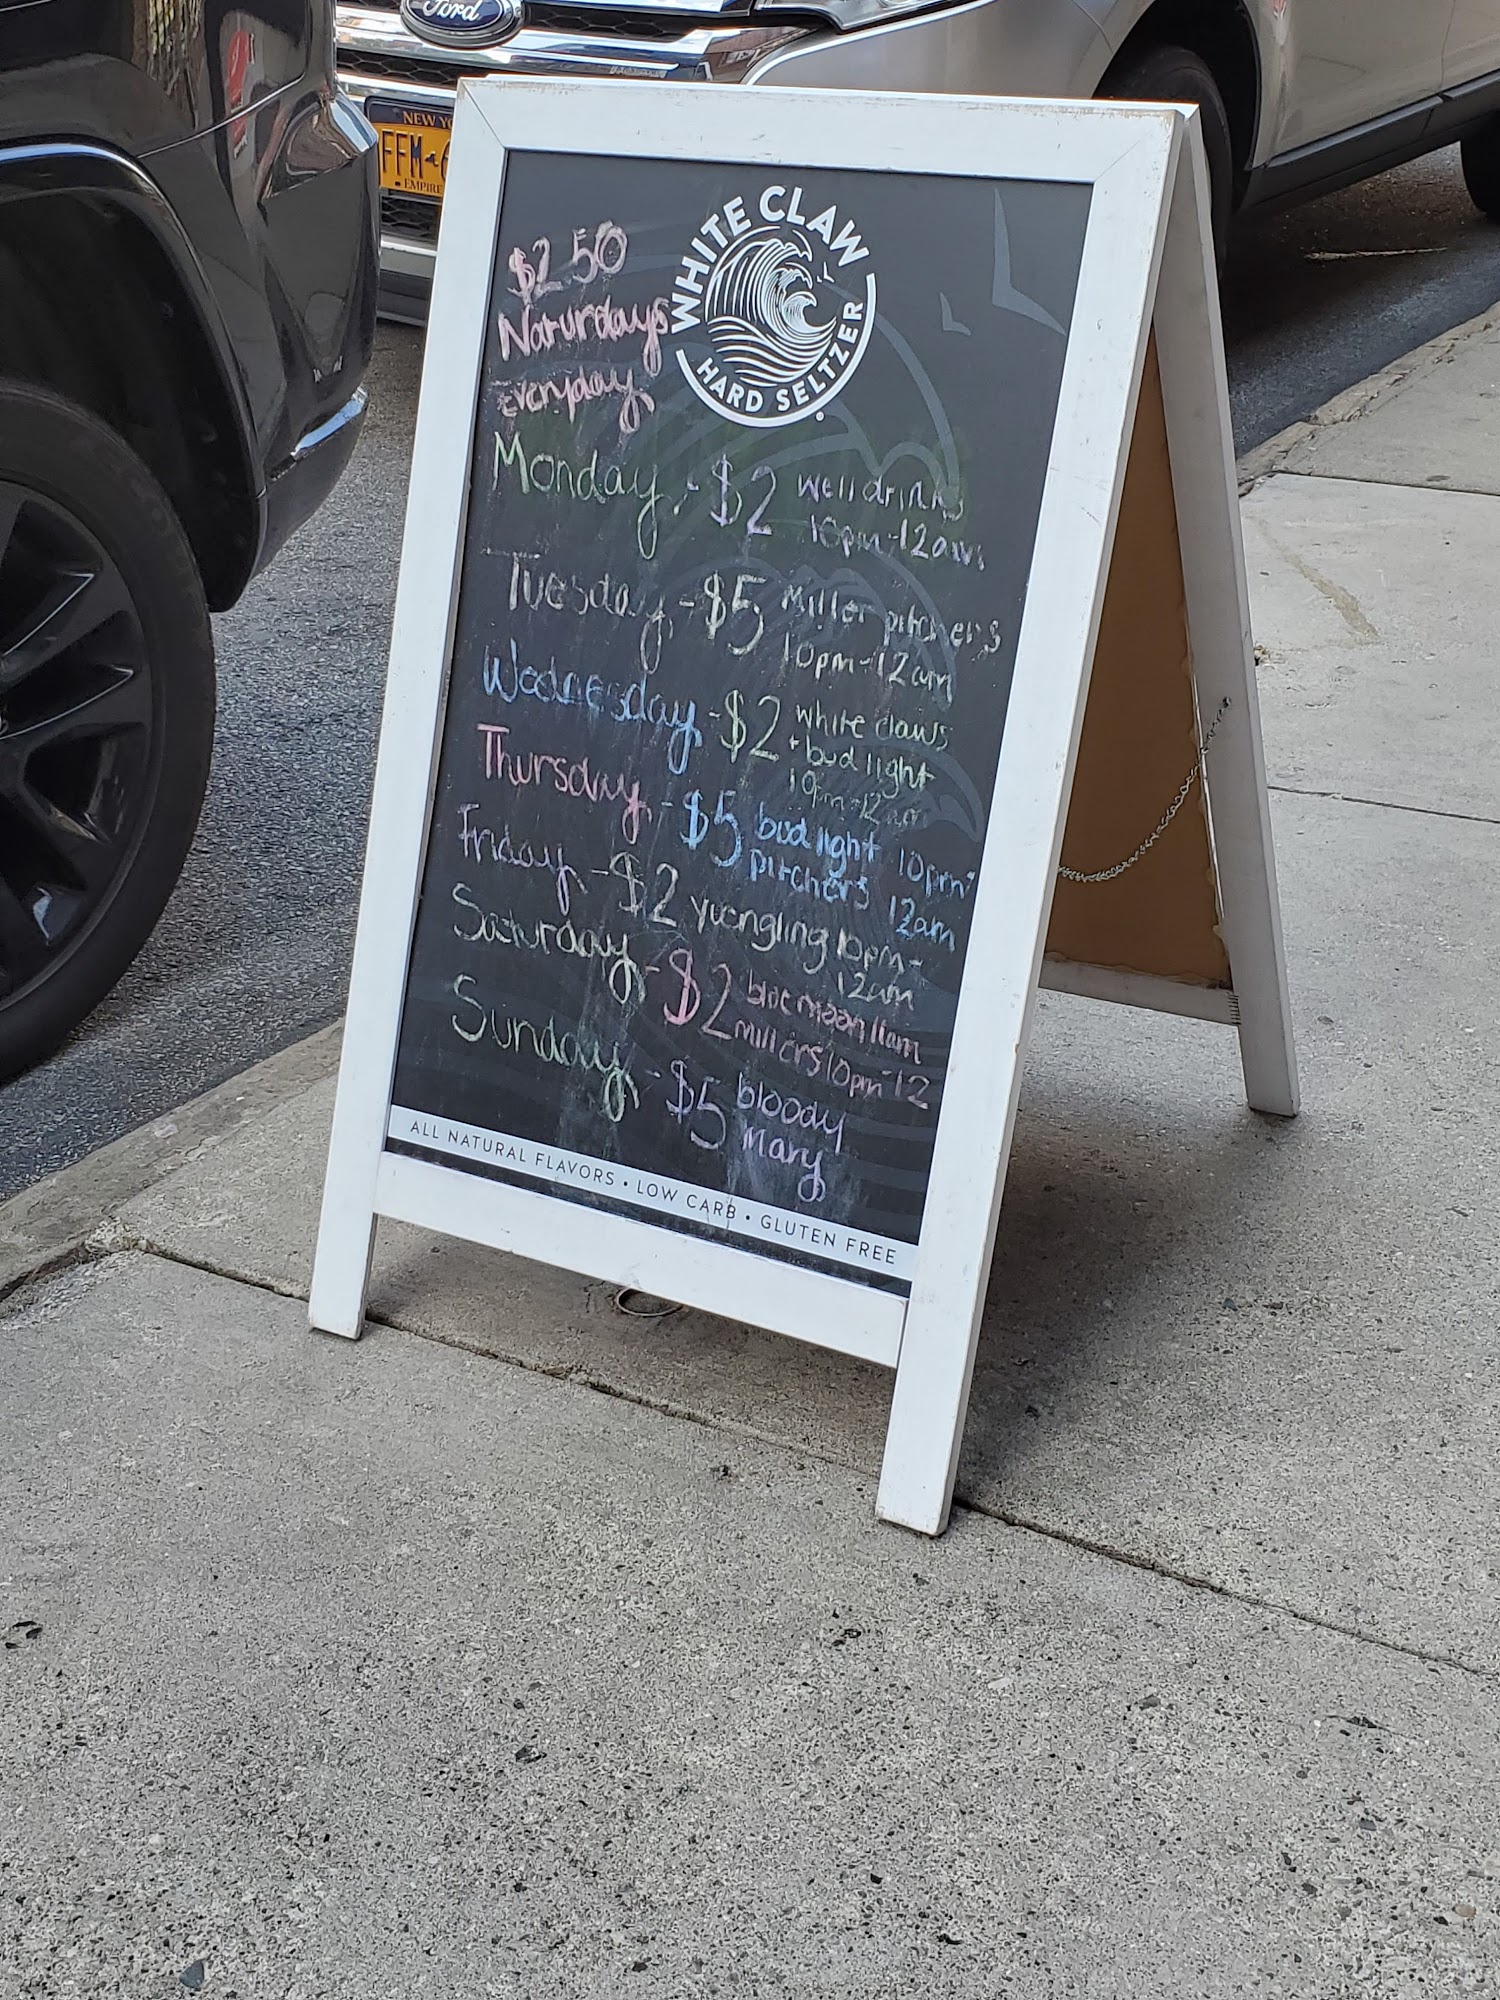 Ford
NEW YO
FFM
EMPIRE
WHITE CLAW
HARD SELTZER
$2.50
Naturdays
Everyday
Monday - $2 well drinks
10pm-12am
Tuesday - $5 Miller pitchers
10pm-12am
Wednesday - $2 white claws
+ bud light
10pm-12am
Thursday - $5 bud light 10pm-
pitchers 12am
Friday - $2 yuengling 10pm-
12am
Saturday - $2 blue moon 11am
millers 10pm-12
Sunday - $5 bloody
mary
ALL NATURAL FLAVORS • LOW CARB • GLUTEN FREE